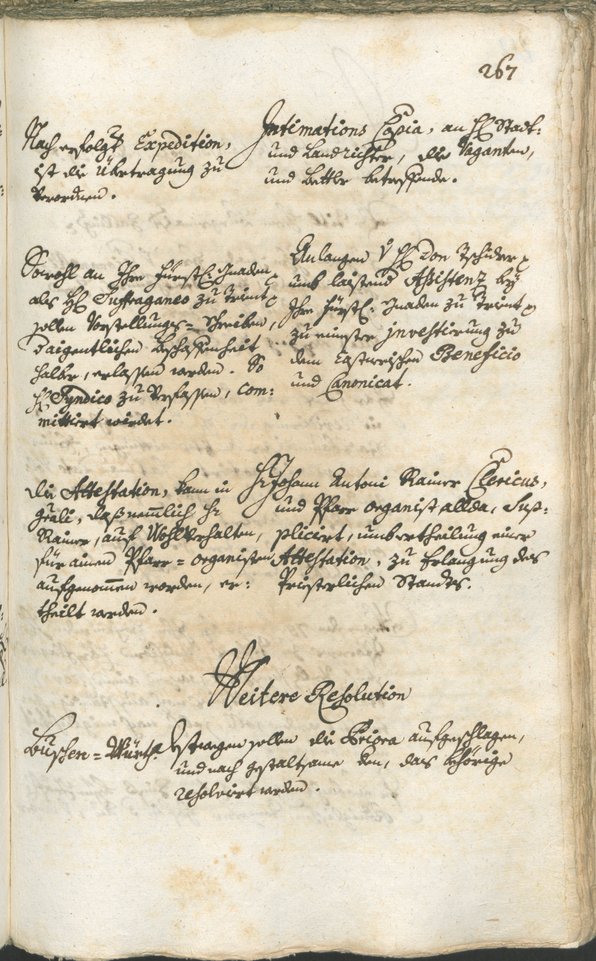 267
Nach erfolgt Expedition,
ist die Übertragung zu
verordnen.
Intimations Copia, an H. Stadt:
und Landrichter, die Vaganten,
und Bettler betreffende.
Sowohl an Ihre Fürstl. Gnaden
als H. Suffraganeo zu Trient
sollen Vorstellungs=Schreiben,
halber, erlassen werden. So
H. Syndico zu verfassen, com:
mittirt wirdet.
Anlangen H. Don Tschider
umb laistend Assistenz bey
Ihre Fürstl: Gnaden zu Trient
zu investirung zu
dem Beneficio
und Canonicat.
die Attestation, kann in
daß nemlich H.
Rainer, auf Wohlverhalten,
für einen Pfarr=organisten
aufgenommen worden, er:
theilt werden.
H. Johann Antoni Rainer Clericus,
und Pfarr organist allda, Sup:
plicirt, umb ertheilung einer
Attestation, zu Erlangung des
Priesterlichen Standts.
Weitere Resolution
sollen die Priora aufgeschlagen,
und nach gestaltsame den, das behörige
resolvirt werden.